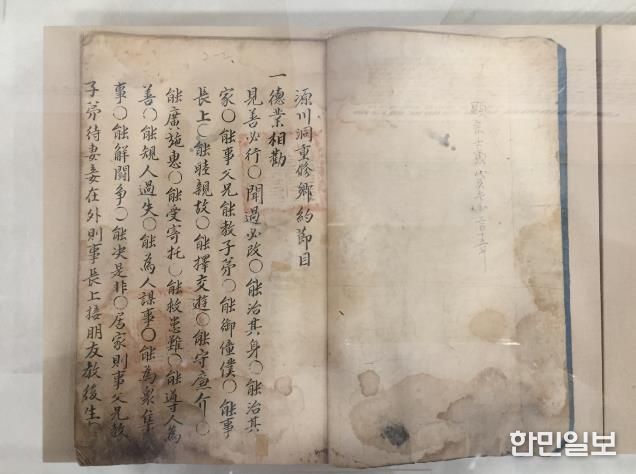 源川洞重修鄉約節目
一德業相勸
見善必行○聞過必改○能治其身○能治其
家○能事父兄能教子弟○能御僮僕○能事
長上○能睦親故○能擇交遊○能守廉介○
能廣施惠○能受寄托○能救患難○能導人為
善○能規人過失○能為人謀事○能為衆集
事○能解鬪争○能决是非○居家則事父兄教
子弟待妻妾在外則事長上接朋友教後生
한민일보